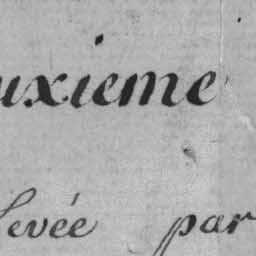 uxieme
levée par